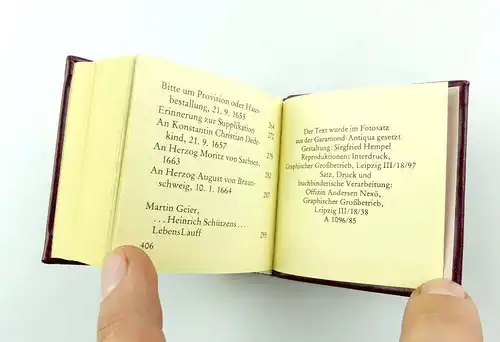 Bitte um Provision oder Haus-
bestallung, 21. 9. 1653
Erinnerung zur Supplikation 272
An Konstantin Christian Dede-
kind, 21. 9. 1657
An Herzog Moritz von Sachsen,
1663
An Herzog August von Braun-
schweig, 10. 1. 1664 287
Martin Geier,
. . . Heinrich Schützens . . .
LebensLauff
406
Der Text wurde im Fotosatz
aus der Garamond-Antiqua gesetzt
Gestaltung: Siegfried Hempel
Reproduktionen: Interdruck,
Graphischer Großbetrieb, Leipzig III/18/97
Satz, Druck und
buchbinderische Verarbeitung:
Offizin Andersen Nexö,
Graphischer Großbetrieb,
Leipzig III/18/38
A 1096/85